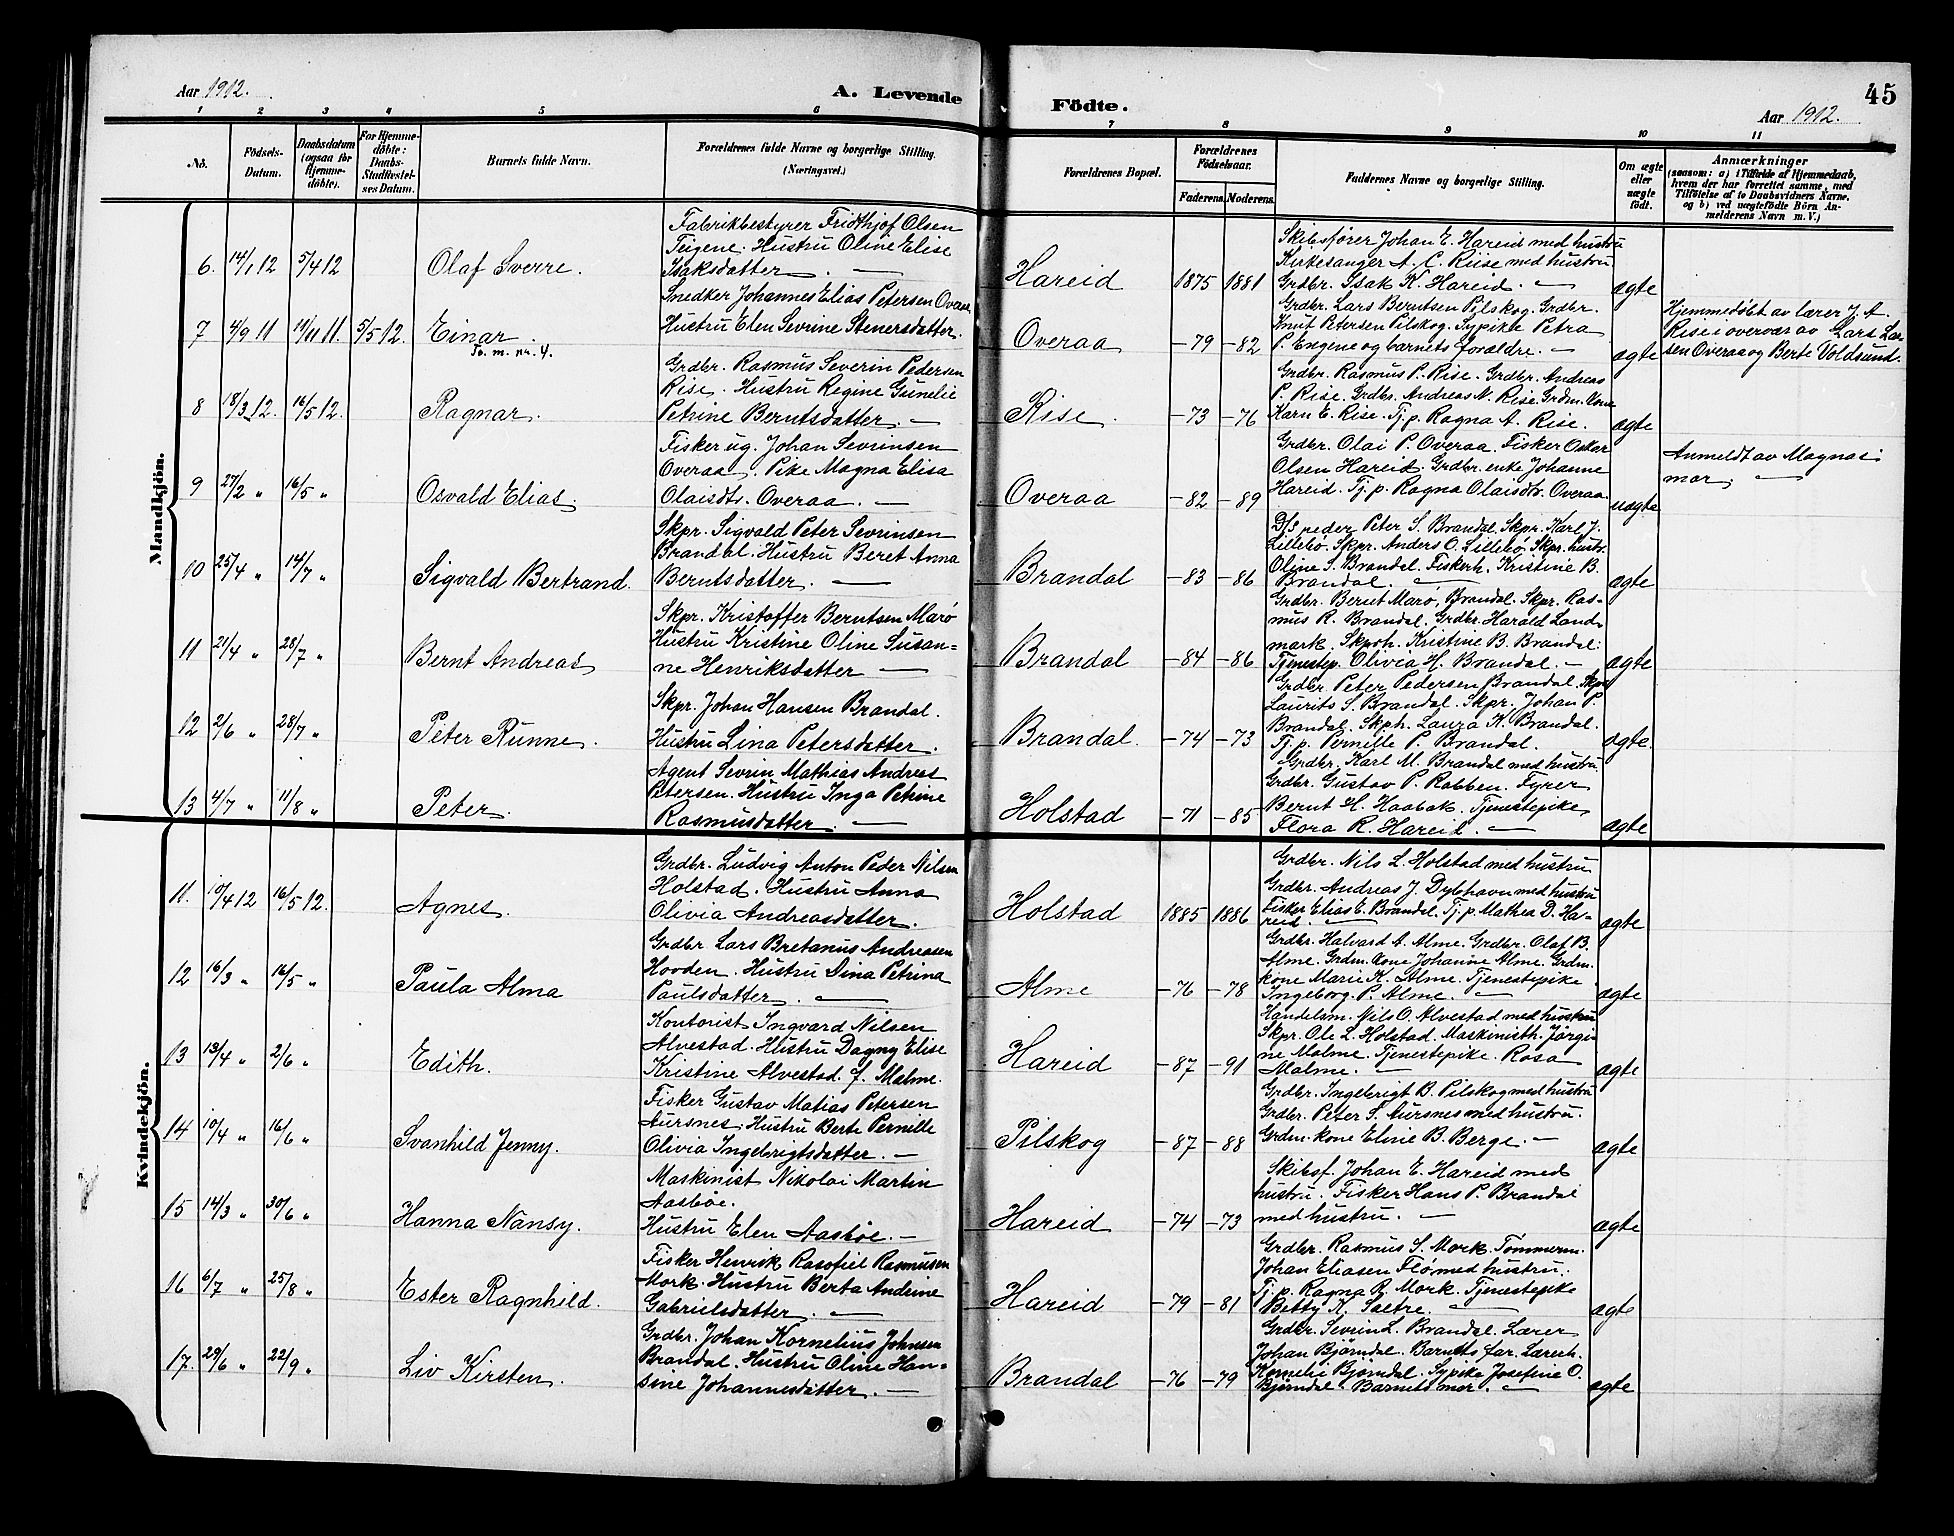 Aar 1912.
A. Levende Födte.
45
Aar 1912.
1 2 3 4 5 6 7 8 9 10 11
No. Födsels-Datum. Daabsdatum (ogsaa for Hjemme-döbte). For Hjemme-döbte: Daabs-Stadfæstel-ses Datum. Barnets fulde Navn. Forældrenes fulde Navne og borgerlige Stilling. (Næringsvei.) Forældrenes Bopæl. Forældrenes Födselsaar. Faderens Moderens. Faddernes Navne og borgerlige Stilling. Om ægte eller uægte födt. Anmærkninger (saasom: a) i Tilfælde af Hjemmedaab, hvem der har forrettet samme, med Tilföielse af to Daabsvidners Navne. og b) ved uægtefödte Börn An-melderens Navn m. V.)
Mandkjön.
6. 14/1 12 5/4 12 Olaf Sverre.
Fabrikbestyrer Fridthjof Olsen
Teigene. Hustru Oline Elise
Isaksdatter.
Hareid 1875 1881
Skibsfører Johan E. Hareid med hustru
Kirkesanger A. C. Riise med hustru
Grdbr. Isak K. Hareid.
ægte
7 4/9 11 19/11 11. 5/5 12. Einar.
Fo. m. nr. 4.
Snedker Johannes Elias Petersen Overaa
Hustru Elen Sevrine Stenersdatter.
Overaa -79 -82
Grdbr. Lars Berntsen Pilskog. Grdbr.
Knut Petersen Pilskog. Sypike Petra
P. Engene og barnets forældre.
ægte
Hjemmedøbt av lærer J. A.
Rise i overvær av Lars Lar-
sen Overaa og Berte Voldsund.
8 18/3 12. 16/5 12. Ragnar.
Grdbr. Rasmus Severin Pedersen
Rise. Hustru Regine Gunelie
Petrine Berntsdatter.
Rise. -73 -76
Grdbr. Rasmus P. Rise. Grdbr. Andreas
P. Rise. Grdbr. Andreas N. Rise. Grdm. kone
Karn E. Rise. Tj. p. Ragna A. Rise.
ægte
9 27/2 " 16/5 " Osvald Elias.
Fisker ug. Johan Sevrinsen
Overaa. Pike Magna Elisa
Olaisdtr. Overaa.
Overaa -82 -89
Grdbr. Olai P. Overaa. Fisker Oskar
Olsen Hareid. Grdbr. enke Johanne
Hareid. Tj. p. Ragna Olaisdtr. Overaa.
uægte
Anmeldt av Magnas
mor.
10 25/4 " 14/7 " Sigvald Bertrand.
Skpr. Sigvald Peter Sevrinsen
Brandal. Hustru Beret Anna
Berntsdatter.
Brandal -83 -86
Peter S. Brandal. Skpr. Karl J.
Lillebø. Skpr. Anders O. Lillebø. Skpr. hustr.
Oline S. Brandal. Fiskerh. Kristine B.
Brandal.
ægte
11 21/4 " 28/7 " Bernt Andreas
Skpr. Kristoffer Berntsen Marø
Hustru Kristine Oline Susan-
ne Henriksdatter
Brandal -84 -86
Grdbr. Bernt Marø, Brandal. Skpr. Ras-
mus R. Brandal. Grdbr. Harald Land-
mark. Skprh. Kristine B. Brandal.
Tjenestep. Olivia H. Brandal.
ægte
12 2/6 " 28/7 " Peter Runne.
Skpr. Johan Hansen Brandal.
Hustru Lina Petersdatter.
Brandal. -74 -73
Grdbr. Peter Pedersen Brandal. Skpr.
Laurits S. Brandal. Skpr. Johan P.
Brandal. Skprh. Laura K. Brandal.
Tj. p. Pernille P. Brandal.
ægte.
13 4/7 " 11/8 " Peter.
Agent Sevrin Mathias Andreas
Petersen. Hustru Inga Petrine
Rasmusdatter.
Holstad -71 -85
Grdbr. Karl M. Brandal med hustru.
Grdbr. Gustav P. Rabben. Fyrer
Bernt H. Haabak. Tjenestepike
Flora R. Hareid.
ægte
Kvindekjön.
11. 10/4 12 16/5 12. Agnes.
Grdbr. Ludvig Anton Peder Nilsen
Holstad. Hustru Anna
Olivia Andreasdatter.
Holstad 1885 1886
Grdbr. Nils L. Holstad med hustru
Grdbr. Andreas J. Dybhavn med hustru
Fisker Elias E. Brandal. Tj. p. Mathea D. Ha-
reid.
ægte
12 16/3 " 16/5 " Paula Alma
Grdbr. Lars Bretanus Andreasen
Hovden. Hustru Dina Petrina
Paulsdatter.
Alme -76 -78
Grdbr. Halvard A. Alme. Grdbr. Olaf B.
Alme. Grdm. kone Johanne Alme. Grdm.
kone Marie K. Alme. Tjenestepike
Ingeborg. P. Alme.
ægte
13 13/4 " 2/6 " Edith.
Kontorist Ingvard Nilsen
Alvestad. Hustru Dagny Elise
Kristine Alvestad. f. Malme.
Hareid -87 -91
Handelsm. Nils O. Alvestad med hustru
Skpr. Ole L. Holstad. Maskinisth. Jørgi-
ne Malme. Tjenestepike. Rosa
Malme.
ægte
14 10/4 " 16/6 " Svanhild Jenny.
Fisker Gustav Matias Petersen
Aursnes. Hustru Berte Pernille
Olivia Ingebrigtsdatter.
Pilskog -87 -88
Grdbr. Ingebrigt B. Pilskog med hustru
Grdbr. Peter S. Aursnes med hustru.
Grdm. kone Eline B. Berge.
ægte
15 14/3 " 30/6 " Hanna Nansy.
Maskinist Nikolai Martin
Aasbøe.
Hustru Elen Aasbøe.
Hareid -74 -73
Skibsf. Johan E. Hareid med
hustru. Fisker Hans P. Brandal
med hustru.
ægte
16 6/7 " 25/8 " Ester Ragnhild.
Fisker Henrik Rasofiel Rasmusen
Mork. Hustru Berta Andrine
Gabrielsdatter.
Hareid -79 -81
Grdbr. Rasmus S. Mork. Tømmerm.
Johan Eliasen Flø med hustru.
Tj. p. Ragna R. Mork. Tjenestepike
Betty K. Saetre.
ægte
17. 29/6 " 22/9 " Liv Kirsten.
Grdbr. Johan Kornelius Johnsen
Brandal. Hustru Oline Han-
sine Johannesdatter.
Brandal -76 -79
Grdbr. Sevrin L. Brandal. Lærer
Johan Bjørndal. Barnets far. Lærerh.
Kornelie Bjørndal. Sypike Josefine O.
Bjørndal. Barnets mor.
ægte